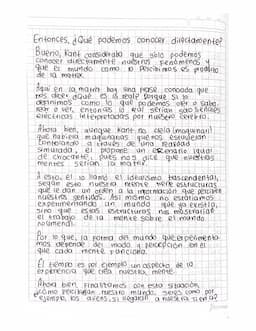 Entonces, ¿Qué podemos conocer directamente?
Bueno, Kant consideraba que sólo podemos
conocer directamente nuestros fenómenos y
que el mundo como lo percibimos es producto
de la matrix.
Aquí en la matrix hay una frase conocida que
nos dice: ¿Qué es lo real? Porque si lo
definimos como lo que podemos oler o sabo-
rear o ver, entonces lo real serían señales
eléctricas interpretadas por nuestro cerebro.
Ahora bien, aunque Kant no creía (imaginaria)
que habían máquinas que nos estuvieran
controlando a través de una realidad
simulada, el propone un escenario igual
de chocante, pues nos dice que nuestras
mentes serían la matrix.
A esto, el lo llamó el idealismo trascendental,
según esto nuestra mente tiene estructuras
que le dan un orden a la información que perciben
nuestros sentidos. Así mismo no estaríamos
experimentando un mundo que ya existía,
sino que estas estructuras nos mostrarían
el trabajo de la mente sobre el mundo
noumenal.
Por lo que, la forma del mundo que experimenta
mos depende del modo y percepción en el
que cada mente funciona.
El tiempo es por ejemplo un aspecto de la
experiencia que crea nuestra mente.
Ahora bien, finalicemos con esta situación,
¿Cómo percibirían nuestro mundo, seres como por
ejemplo, los aliens, si llegaran a nuestra tierra?